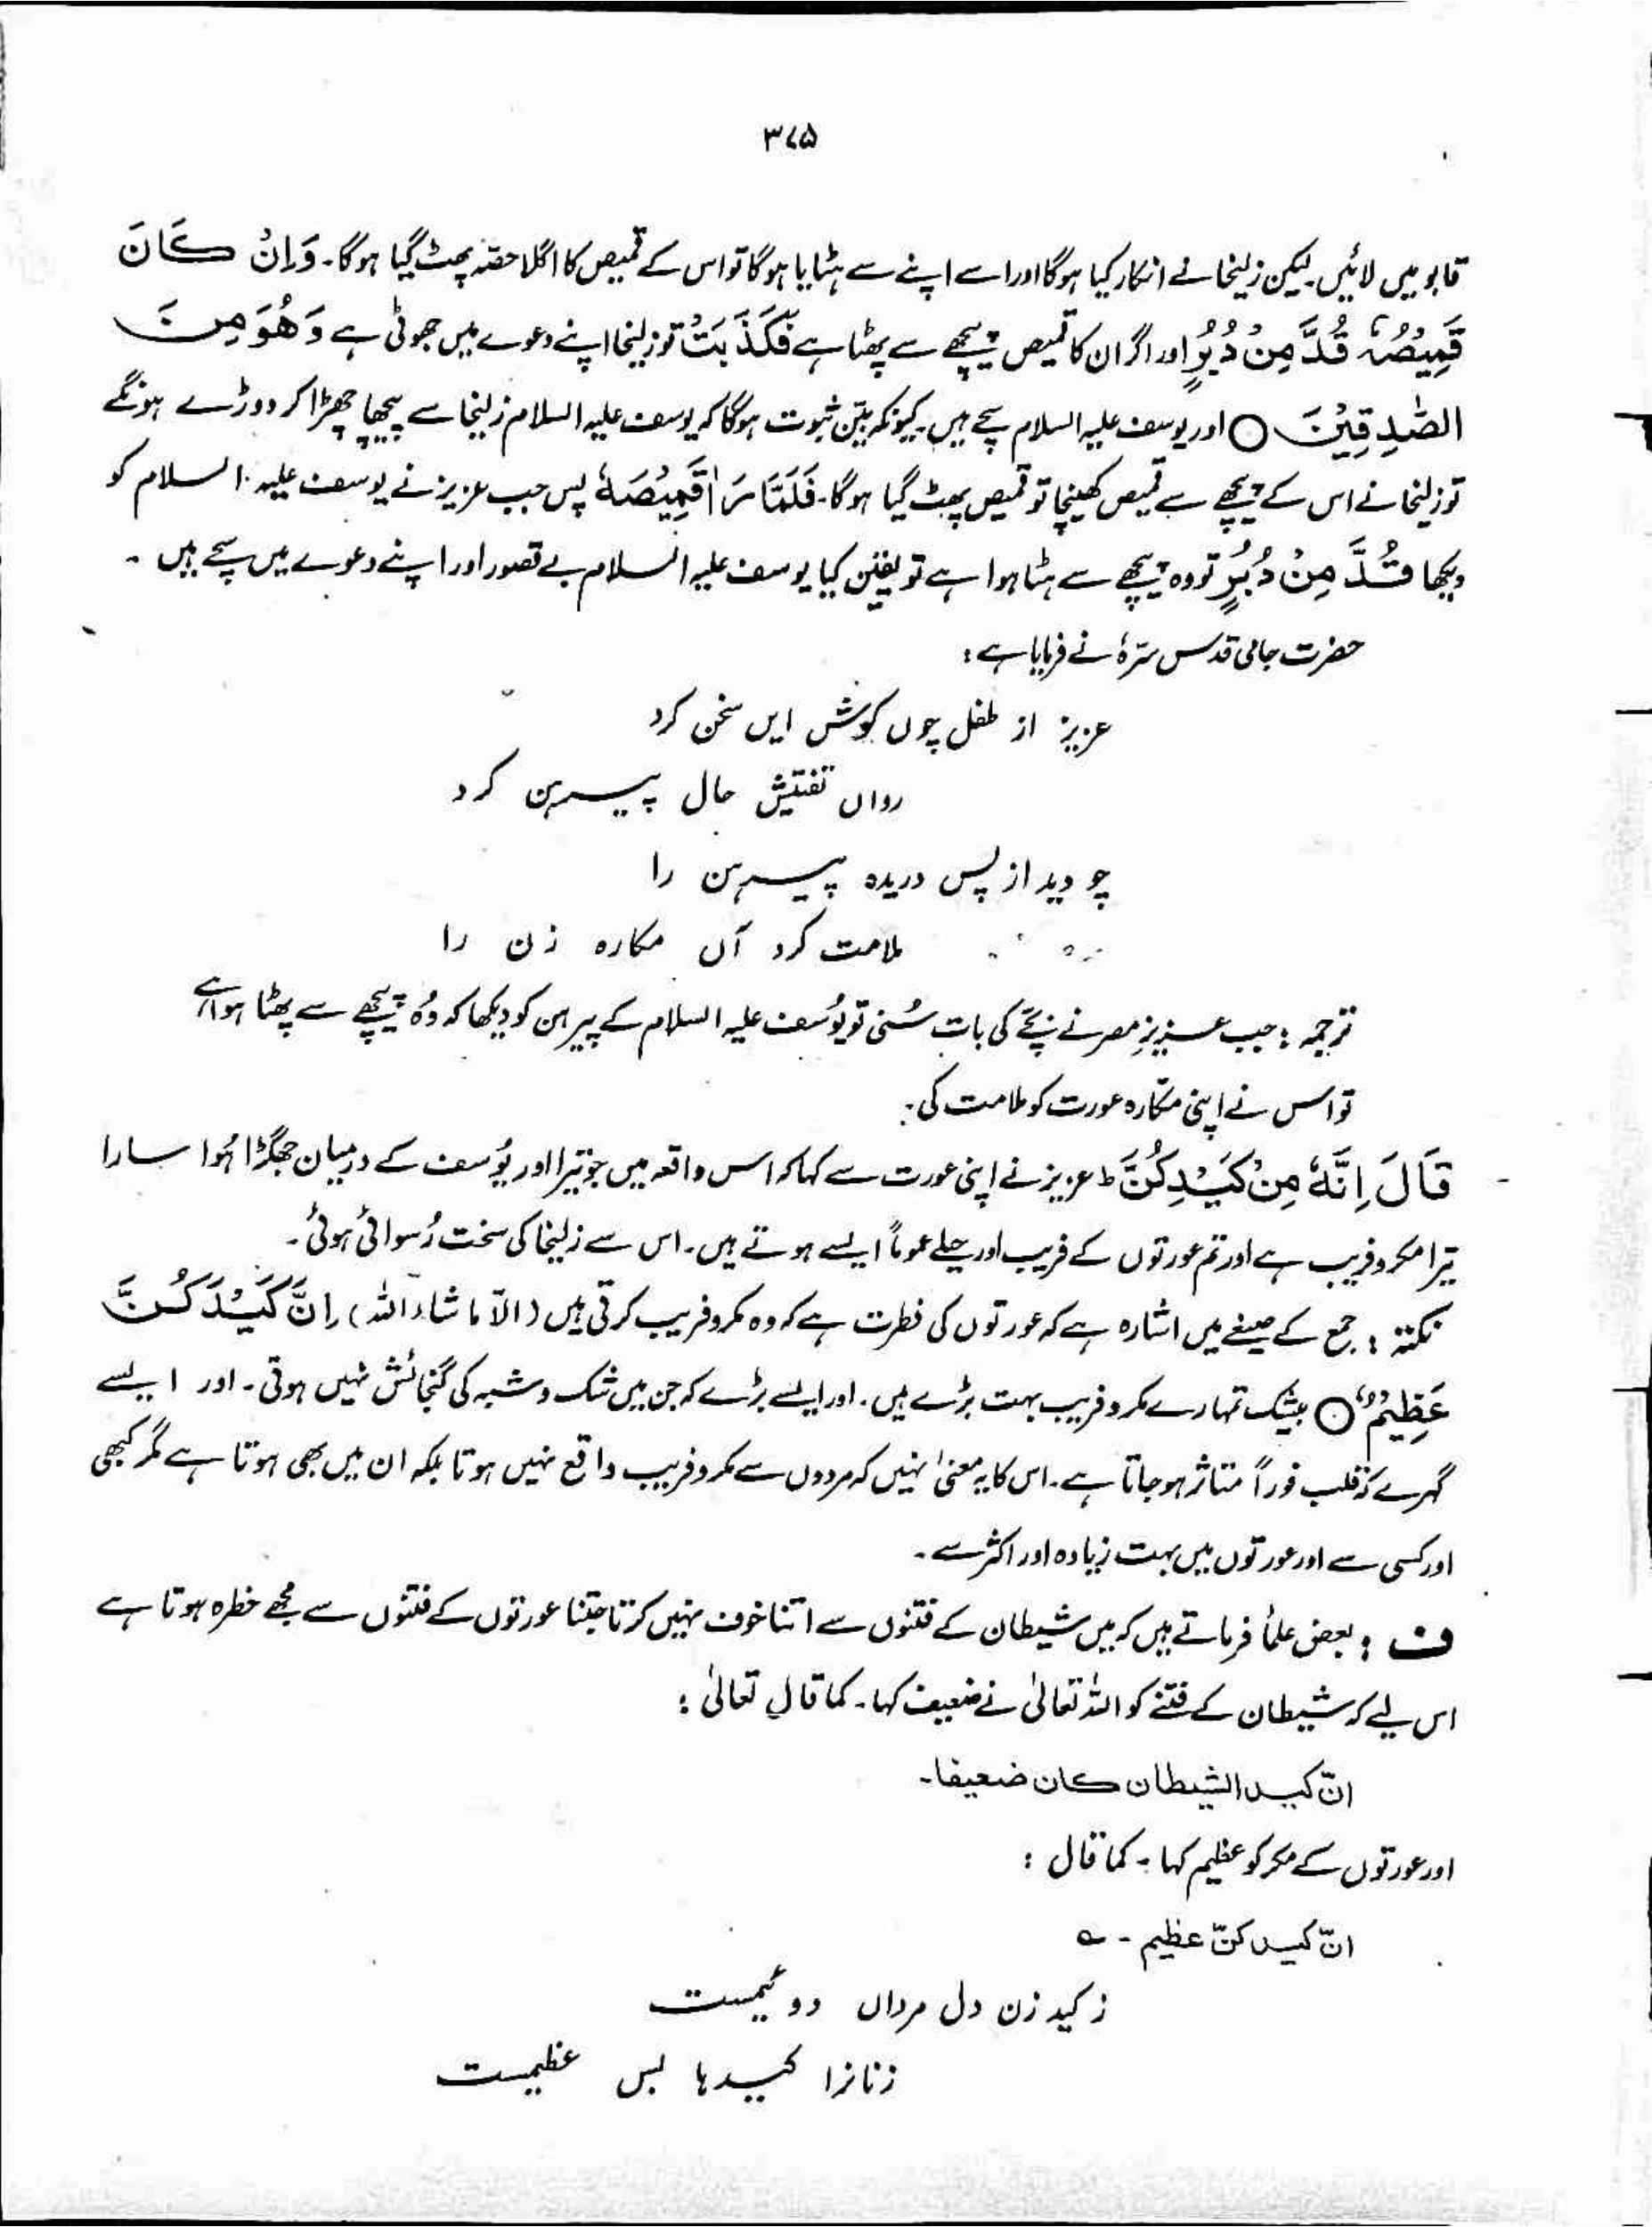 ۳۷۵
قابو میں لائیں۔ لیکن زلیخا نے انکار کیا ہوگا اور اسے اپنے سے ہٹایا ہوگا تو اس کے قمیص کا اگلا حصّہ پھٹ گیا ہوگا۔ وَاِنْ كَانَ
قَمِيْصُهٗ قُدَّ مِنْ دُبُرٍ اور اگر ان کا قمیص پیچھے سے پھٹا ہے فَكَذَبَتْ تو زلیخا اپنے دعوے میں جھوٹی ہے وَهُوَ مِنَ
الصّٰدِقِيْنَ ○ اور یوسف علیہ السلام سچے ہیں۔ کیونکہ بیّن ثبوت ہوگا کہ یوسف علیہ السلام زلیخا سے پیچھا چھڑا کر دوڑے ہونگے
تو زلیخا نے اس کے پیچھے سے قمیص کھینچا تو قمیص پھٹ گیا ہوگا۔ فَلَمَّا رَاٰ قَمِيْصَهٗ پس جب عزیز نے یوسف علیہ السلام کو
دیکھا قُدَّ مِنْ دُبُرٍ تو وہ پیچھے سے ہٹا ہوا ہے تو یقین کیا یوسف علیہ السلام بے قصور اور اپنے دعوے میں سچے ہیں ۔
حضرت جامی قدس سرّہٗ نے فرمایا ہے :
عزیز از طفل چوں گوش ایں سخن کرد
رواں تفتیش حال پیرہن کرد
چو دید از پس دریدہ پیرہن را
ملامت کرد آں مکارہ زن را
ترجمہ : جب عزیزِ مصر نے بچّے کی بات سُنی تو یُوسف علیہ السلام کے پیراہن کو دیکھا کہ وُہ پیچھے سے پھٹا ہوا ہے
تو اس نے اپنی مکّارہ عورت کو ملامت کی :
قَالَ اِنَّهٗ مِنْ كَيْدِكُنَّ ط عزیز نے اپنی عورت سے کہا کہ اس واقعہ میں جو تیرا اور یُوسف کے درمیان جھگڑا ہُوا سارا
تیرا مکر و فریب ہے اور تم عورتوں کے فریب اور حیلے عموماً ایسے ہوتے ہیں۔ اس سے زلیخا کی سخت رُسوائی ہوئی۔
نکتہ : جمع کے صیغے میں اشارہ ہے کہ عورتوں کی فطرت ہے کہ وہ مکر و فریب کرتی ہیں (الّا ماشاء اللہ) اِنَّ كَيْدَكُنَّ
عَظِيْمٌ ○ بیشک تمہارے مکر و فریب بہت بڑے ہیں۔ اور ایسے بڑے کہ جن میں شک و شبہ کی گنجائش نہیں ہوتی۔ اور ایسے
گہرے کہ قلب فوراً متاثر ہو جاتا ہے۔ اس کا یہ معنیٰ نہیں کہ مردوں سے مکر و فریب واقع نہیں ہوتا بلکہ ان میں بھی ہوتا ہے مگر کبھی
اور کسی سے اور عورتوں میں بہت زیادہ اور اکثر سے ۔
ف : بعض علماٗ فرماتے ہیں کہ میں شیطان کے فتنوں سے اتنا خوف نہیں کرتا جتنا عورتوں کے فتنوں سے مجھے خطرہ ہوتا ہے
اس لیے کہ شیطان کے فتنے کو اللہ تعالیٰ نے ضعیف کہا۔ کما قال تعالیٰ :
انّ کید الشیطان کان ضعیفا۔
اور عورتوں کے مکر کو عظیم کہا ۔ کما قال :
انّ کیدکنّ عظیم ۔ ؎
ز کید زن دل مرداں دو نیمست
زنانرا کیدہا بس عظیمست